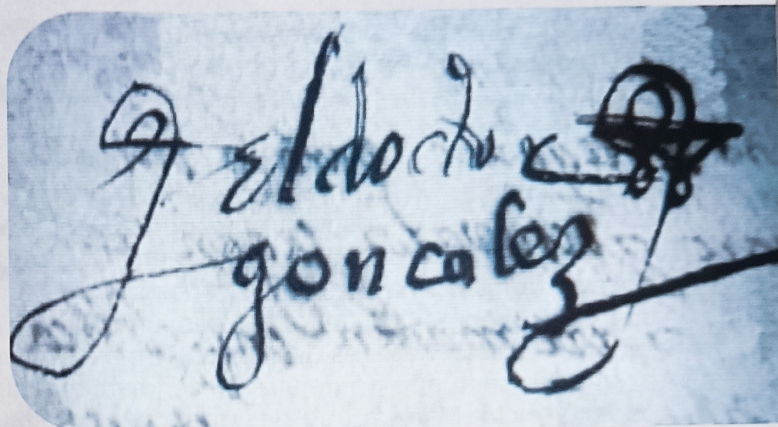 el doctor
goncalez